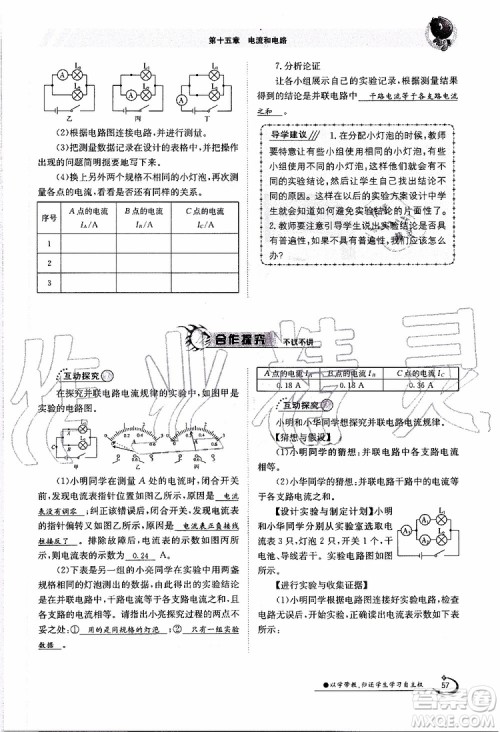 第十五章 电流和电路
乙 丙 丁
(2)根据电路图连接电路,并进行测量。
(3)把测量数据记录在设计的表格中,并将出
现的问题简明扼要地写下来。
(4)换上另外两个规格不同的小灯泡,再次测
量各点的电流,看看是否还有同样的关系。
序号 A点的电流 IA/A B点的电流 IB/A C点的电流 IC/A
1
2
3
7.分析论证
让各小组展示自己的实验记录,根据测量结果
得到的结论是并联电路中 干路电流等于各支路电流
之和 。
导学建议 1.在分配小灯泡的时候,教师
要特意让有些小组使用相同的小灯泡,有些
小组使用不同的小灯泡。这样可能会得到不
同的实验结论,让学生自己找出结论不同的
原因。使学生在以后的实验方案设计中具有
多样性,避免实验结论的片面性。
2.教师要引导学生说出实验结论是否具
有普遍性,如果不具有普遍性,我们应该怎么
办?
合作探究 不议不讲
互动探究1
在探究并联电路电流规律的实验中,如图甲是
实验的电路图。
甲 乙 丙
(1)小明同学在测量 A 处的电流时,闭合开关
前,发现电流表的指针如图乙所示,原因是 电流
表没有调零 ;纠正错误后,闭合开关,发现电流表
的指针偏转如图丙所示,原因是 电流表正负接线
柱接反了 。排除故障后,电流表的示数如图丁
所示,则电流表示数为 0.24 A。
(2)下表为另一组的小亮同学在实验中用两个规
格相同的灯泡测出的一组数据,他根据实验得出结论
是:并联电路中,干路电流等于各支路电流之和,且
各支路的电流相等。请指出小亮探究过程的两点不
妥之处:① 用的是同规格的灯泡 ;② 只有一组实验
数据 。
A点的电流IA B点的电流IB C点的电流IC
0.18 A 0.18 A 0.36 A
互动探究2
小明和小华同学想探究并联电路电流规律。
【猜想与假设】
【设计实验与制定计划】
小明和小华同学分别从实验室选取电
流表 3 只、灯泡 2 只和开关、
电池、导线若干。实验电路图如图。
【进行实验与收集证据】
(1)小明同学根据电路图连接好电路,检查
以学带教,归还学生学习自主权
57
作业精灵